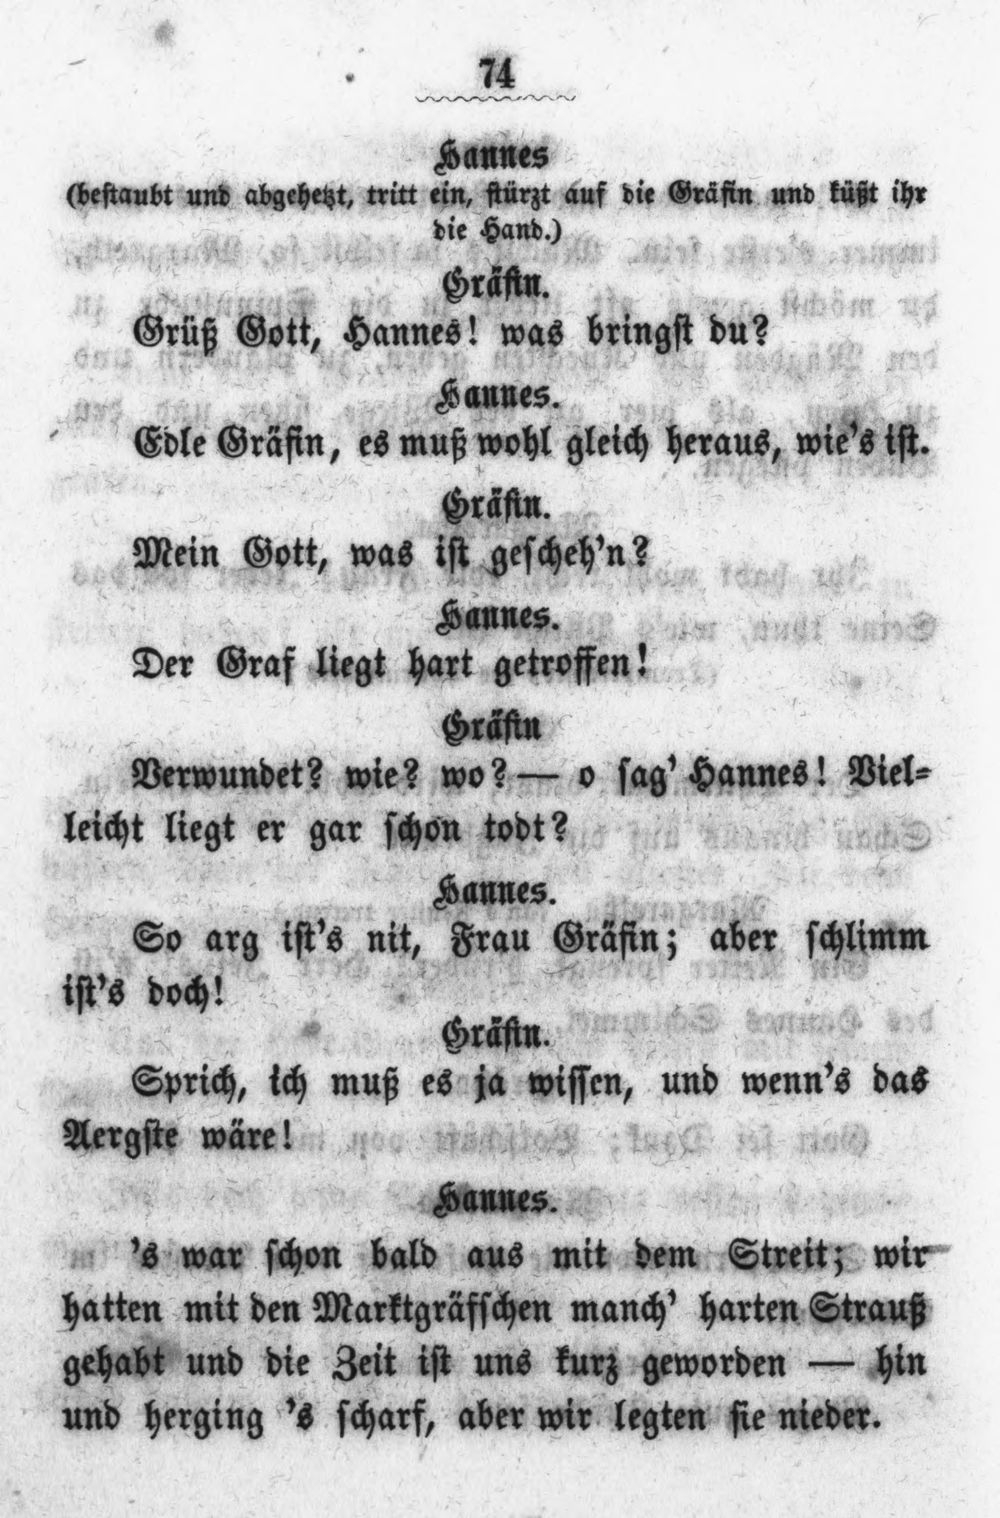 74
Hannes
(bestaubt und abgehetzt, tritt ein, stürzt auf die Gräfin und küßt ihr
die Hand.)
Gräfin.
Grüß Gott, Hannes! was bringst du?
Hannes.
Edle Gräfin, es muß wohl gleich heraus, wie's ist.
Gräfin.
Mein Gott, was ist gescheh'n?
Hannes.
Der Graf liegt hart getroffen!
Gräfin
Verwundet? wie? wo? — o sag' Hannes! Viel-
leicht liegt er gar schon todt?
Hannes.
So arg ist's nit, Frau Gräfin; aber schlimm
ist's doch!
Gräfin.
Sprich, ich muß es ja wissen, und wenn's das
Aergste wäre!
Hannes.
's war schon bald aus mit dem Streit; wir
hatten mit den Marktgräfschen manch' harten Strauß
gehabt und die Zeit ist uns kurz geworden — hin
und herging 's scharf, aber wir legten sie nieder.